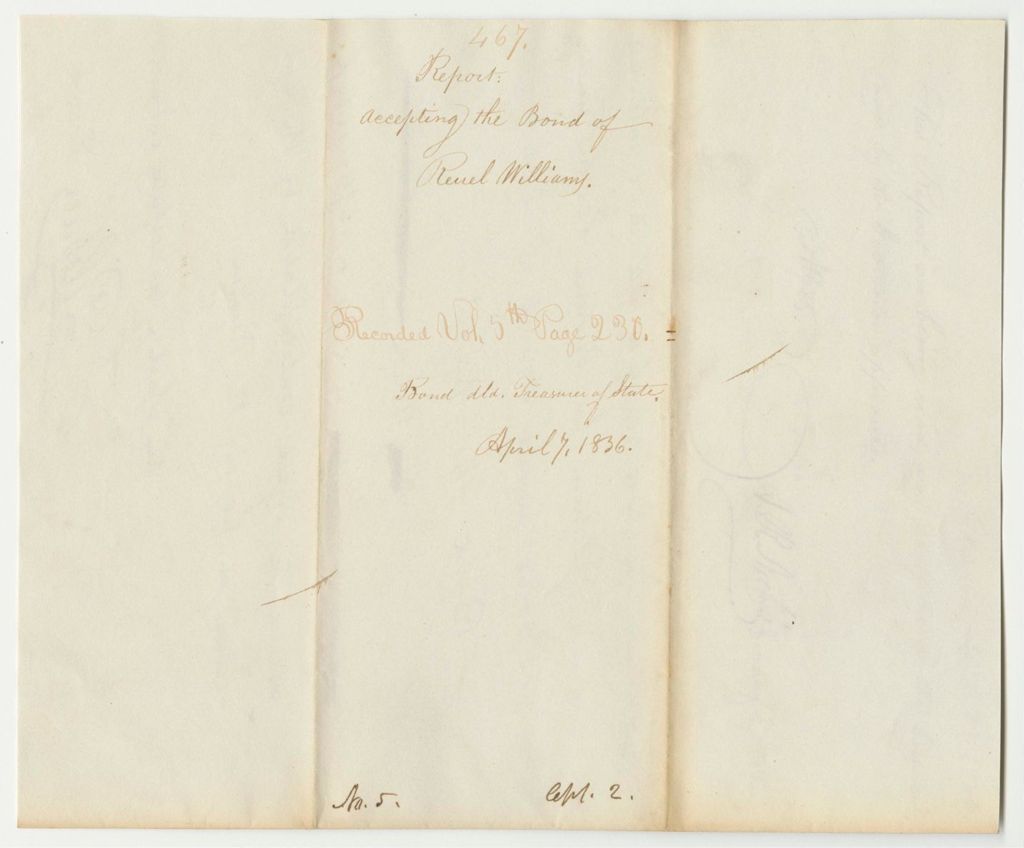 467.
Report:
accepting the Bond of
Reuel Williams.
Recorded Vol, 5th Page 230.
Bond dld. Treasurer of State.
April 7, 1836.
No. 5. 2.